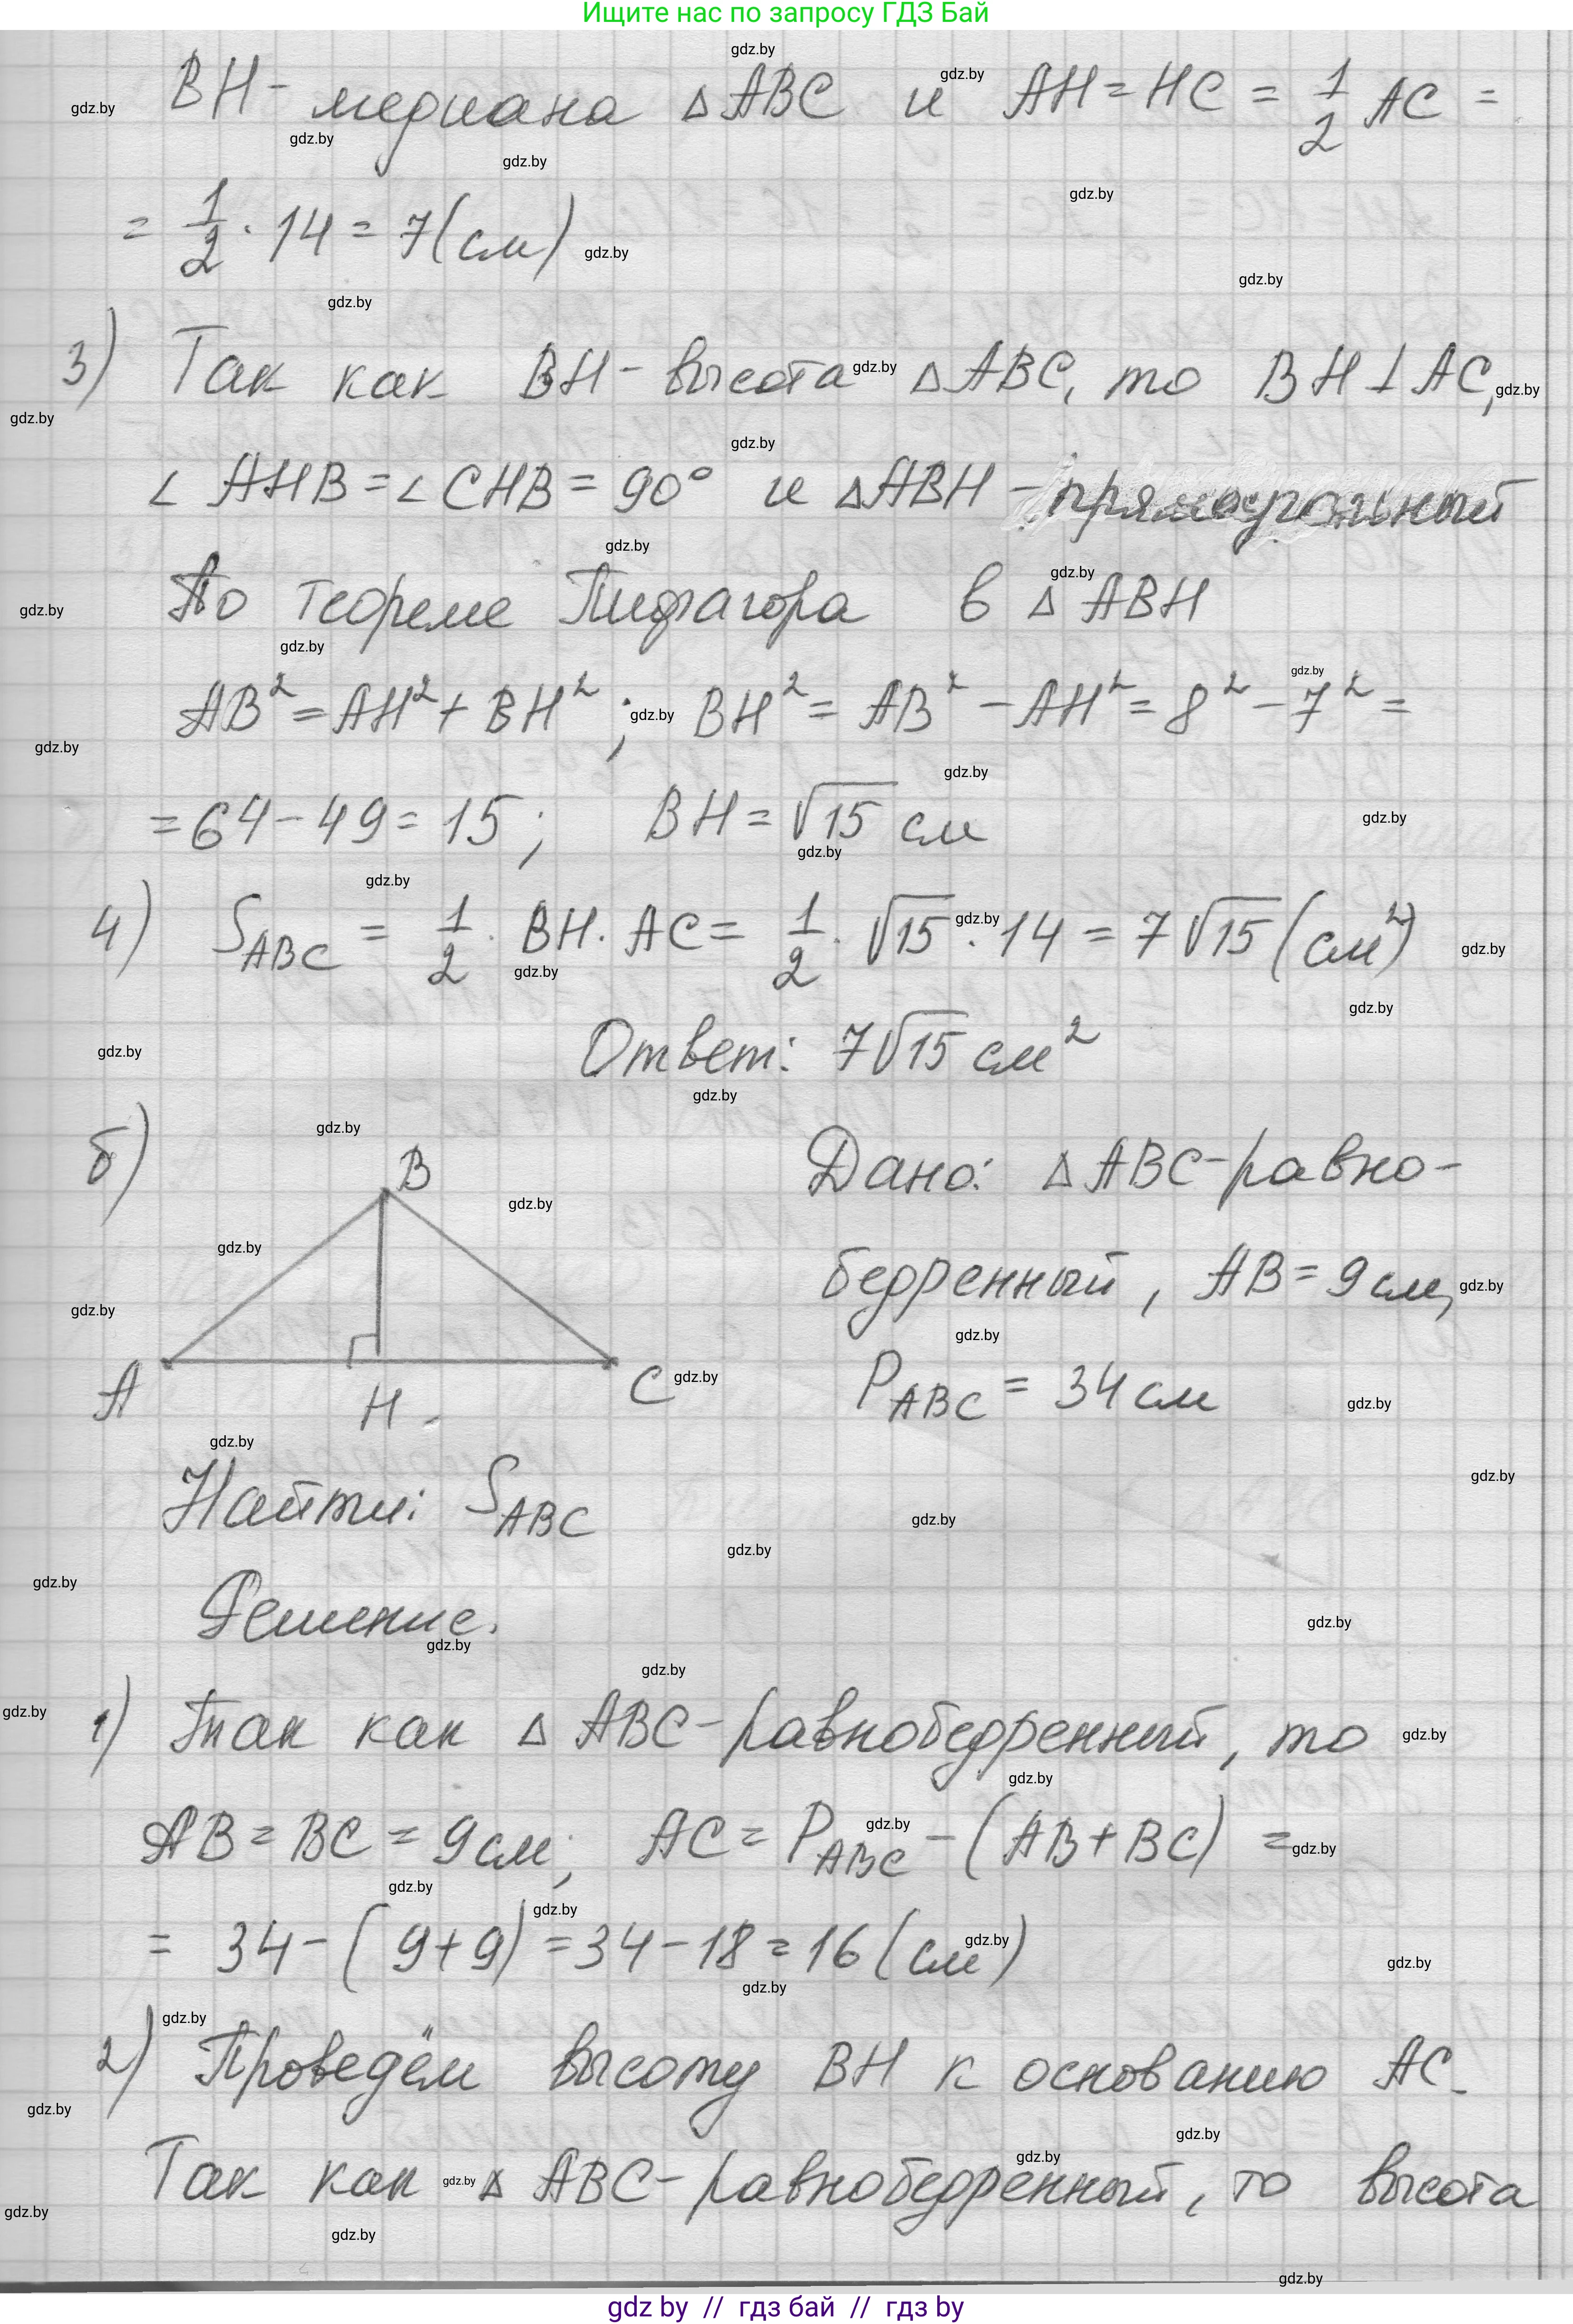 Ищите нас по запросу ГДЗ Бай
BH - медиана △ABC и AH = HC = 1/2 AC =
= 1/2 · 14 = 7 (см)
3) Так как BH - высота △ABC, то BH ⊥ AC,
∠AHB = ∠CHB = 90° и △ABH - прямоугольный
По теореме Пифагора в △ABH
AB² = AH² + BH² ; BH² = AB² - AH² = 8² - 7² =
= 64 - 49 = 15 ; BH = √15 см
4) S_ABC = 1/2 · BH · AC = 1/2 · √15 · 14 = 7√15 (см²)
Ответ: 7√15 см²
б)
B
A
H
C
Дано: △ABC - равно-
бедренный, AB = 9 см,
P_ABC = 34 см
Найти: S_ABC
Решение.
1) Так как △ABC - равнобедренный, то
AB = BC = 9 см; AC = P_ABC - (AB + BC) =
= 34 - (9 + 9) = 34 - 18 = 16 (см)
2) Проведём высоту BH к основанию AC.
Так как △ABC - равнобедренный, то высота
gdz by // гдз бай // гдз by